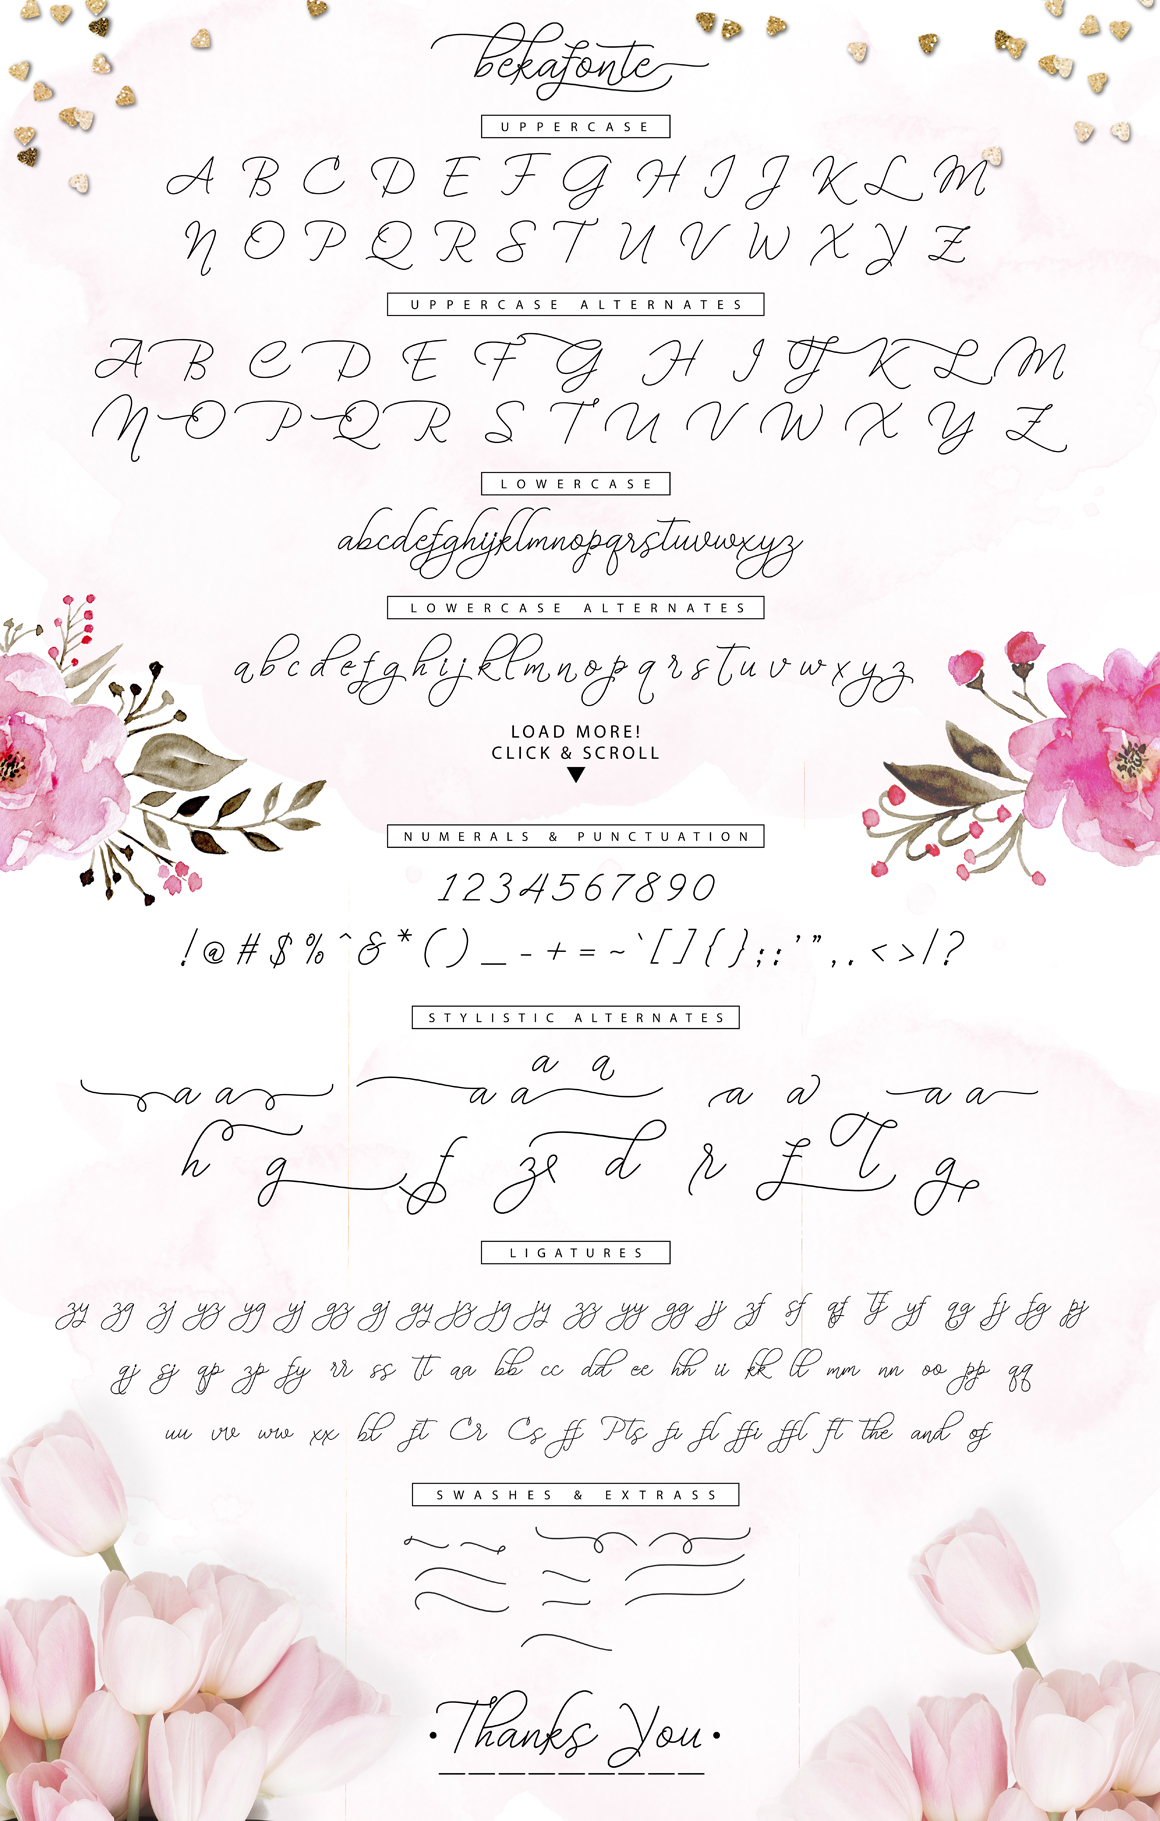 bekafonte
UPPERCASE
A B C D E F G H I J K L M
N O P Q R S T U V W X Y Z
UPPERCASE ALTERNATES
A B C D E F G H I J K L M
N O P Q R S T U V W X Y Z
LOWERCASE
abcdefghijklmnopqrstuvwxyz
LOWERCASE ALTERNATES
a b c d e f g h i j k l m n o p q r s t u v w x y z
LOAD MORE!
CLICK & SCROLL
NUMERALS & PUNCTUATION
1 2 3 4 5 6 7 8 9 0
! @ # $ % ^ & * ( ) _ - + = ~ ` [ ] { } ; : ' " , . < > / ?
STYLISTIC ALTERNATES
a a
a a a a a a a a
h g f z s d r f t g
LIGATURES
zy zg zj yz yg yj gz gj gy jz jg jy zz yy gg jj zf sf qf tf yf qg fj fg pj
qj sj qp zp fy rr ss tt aa bb cc dd ee hh ii kk ll mm nn oo pp qq
uu vv ww xx bt ft Cr Cs ff Pts fi fl ffi ffl ft the and of
SWASHES & EXTRASS
Thanks You